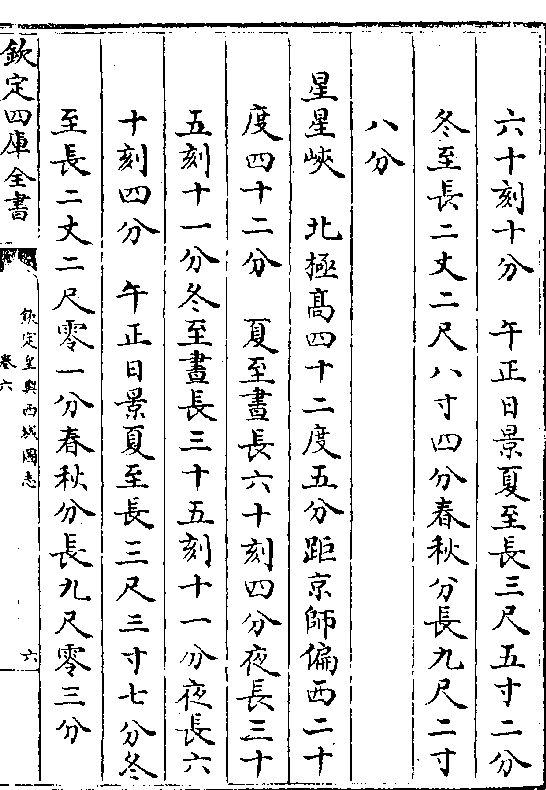 六十刻十分　午正日景夏至長三尺五寸二分
冬至長二丈二尺八寸四分春秋分長九尺二寸
八分
星星峽　北極高四十二度五分距京師偏西二十
度四十二分　夏至晝長六十刻四分夜長三十
五刻十一分冬至晝長三十五刻十一分夜長六
十刻四分　午正日景夏至長三尺三寸七分冬
至長二丈二尺零一分春秋分長九尺零三分
欽定四庫全書
欽定皇輿西域圖志
卷六
六